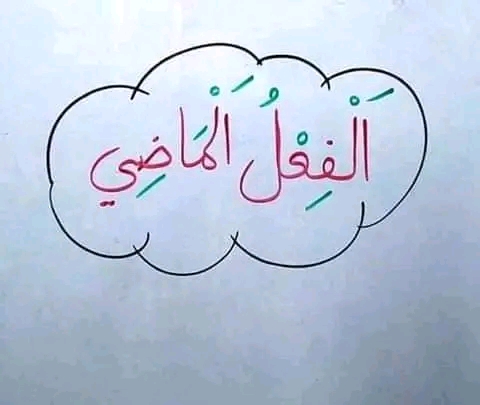 اَلْفِعْلُ اَلْمَاضِي